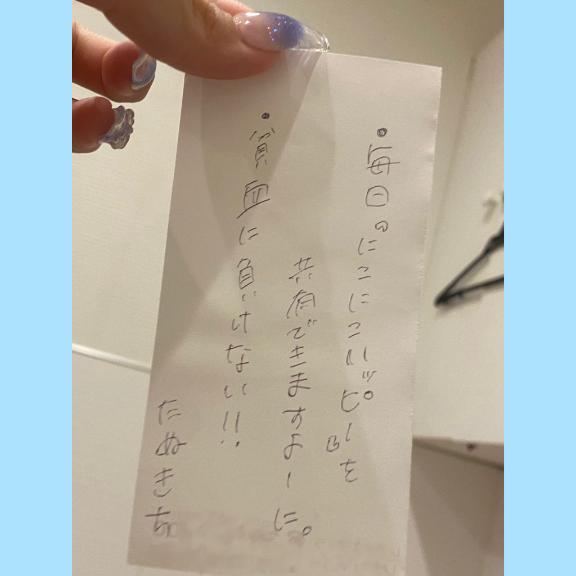 ・毎日。にこにこハッピーを
共有できますよーに。
・貧血に負けない!!
たぬきち